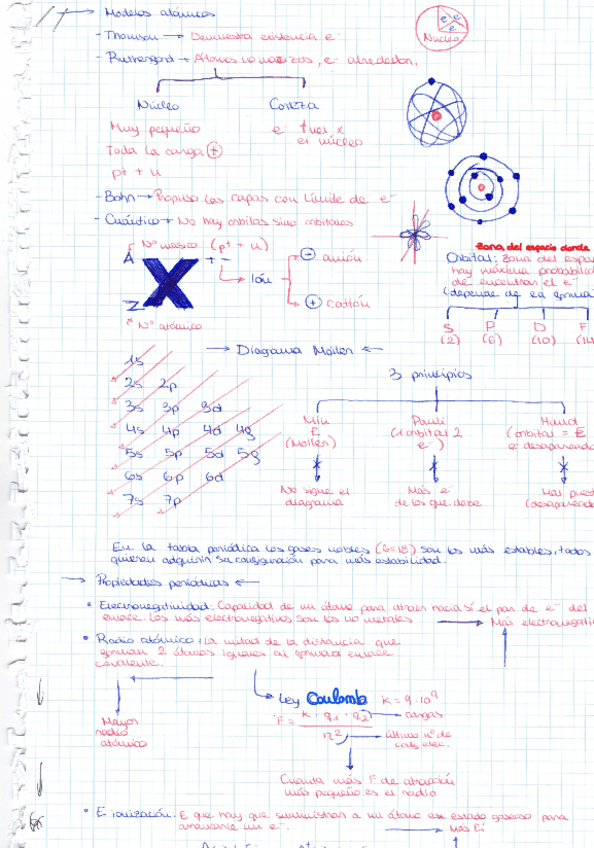 Modelos atómicos
- Thomson → Demuestra existencia e⁻
e⁻ e⁻ e⁻
Núcleo
- Rutherford → Átomos no macizos, e⁻ alrededor.
Núcleo Corteza
Muy pequeño
Toda la carga +
pt + n
e⁻ x
el núcleo
- Bohr → Propuso las capas con límite de e⁻
- Cuántico → No hay órbitas sino orbitales
Nº másico (pt + n)
A X + -
Z
Ión
- anión
+ catión
Nº atómico
Zona del espacio donde
Orbital: zona del espac
hay máxima probabilid
de encontrar el e⁻
(depende de la forma
S P D F
(2) (6) (10) (14
→ Diagrama Möller ←
1s
2s 2p
3s 3p 3d
4s 4p 4d 4f
5s 5p 5d 5f
6s 6p 6d
7s 7p
3 principios
Mín
E
(Möller)
Pauli
(1 orbital 2
e⁻)
Hund
(orbital = E
e⁻ desaparead
No sigue el
diagrama
Más e⁻
de los que debe
Mal puest
(desaparead
En la tabla periódica los gases nobles (G=18) son los más estables, todos
quieren adquirir su configuración para más estabilidad.
→ Propiedades periódicas ←
• Electronegatividad: Capacidad de un átomo para atraer hacia sí el par de e⁻ del
enlace. Los más electronegativos son los no metales
Más electronegati
• Radio atómico: La mitad de la distancia que
forman 2 átomos iguales que forman enlace
covalente.
Mayor
radio
atómico
Ley Coulomb K = 9·10⁹
F = K · q1 · q2 cargas
r² último nº de
cada elec.
Cuanta más F de atracción
más pequeño es el radio
• E ionización: E que hay que suministrar a un átomo en estado gaseoso para
arrancarle un e⁻.
Más Ei